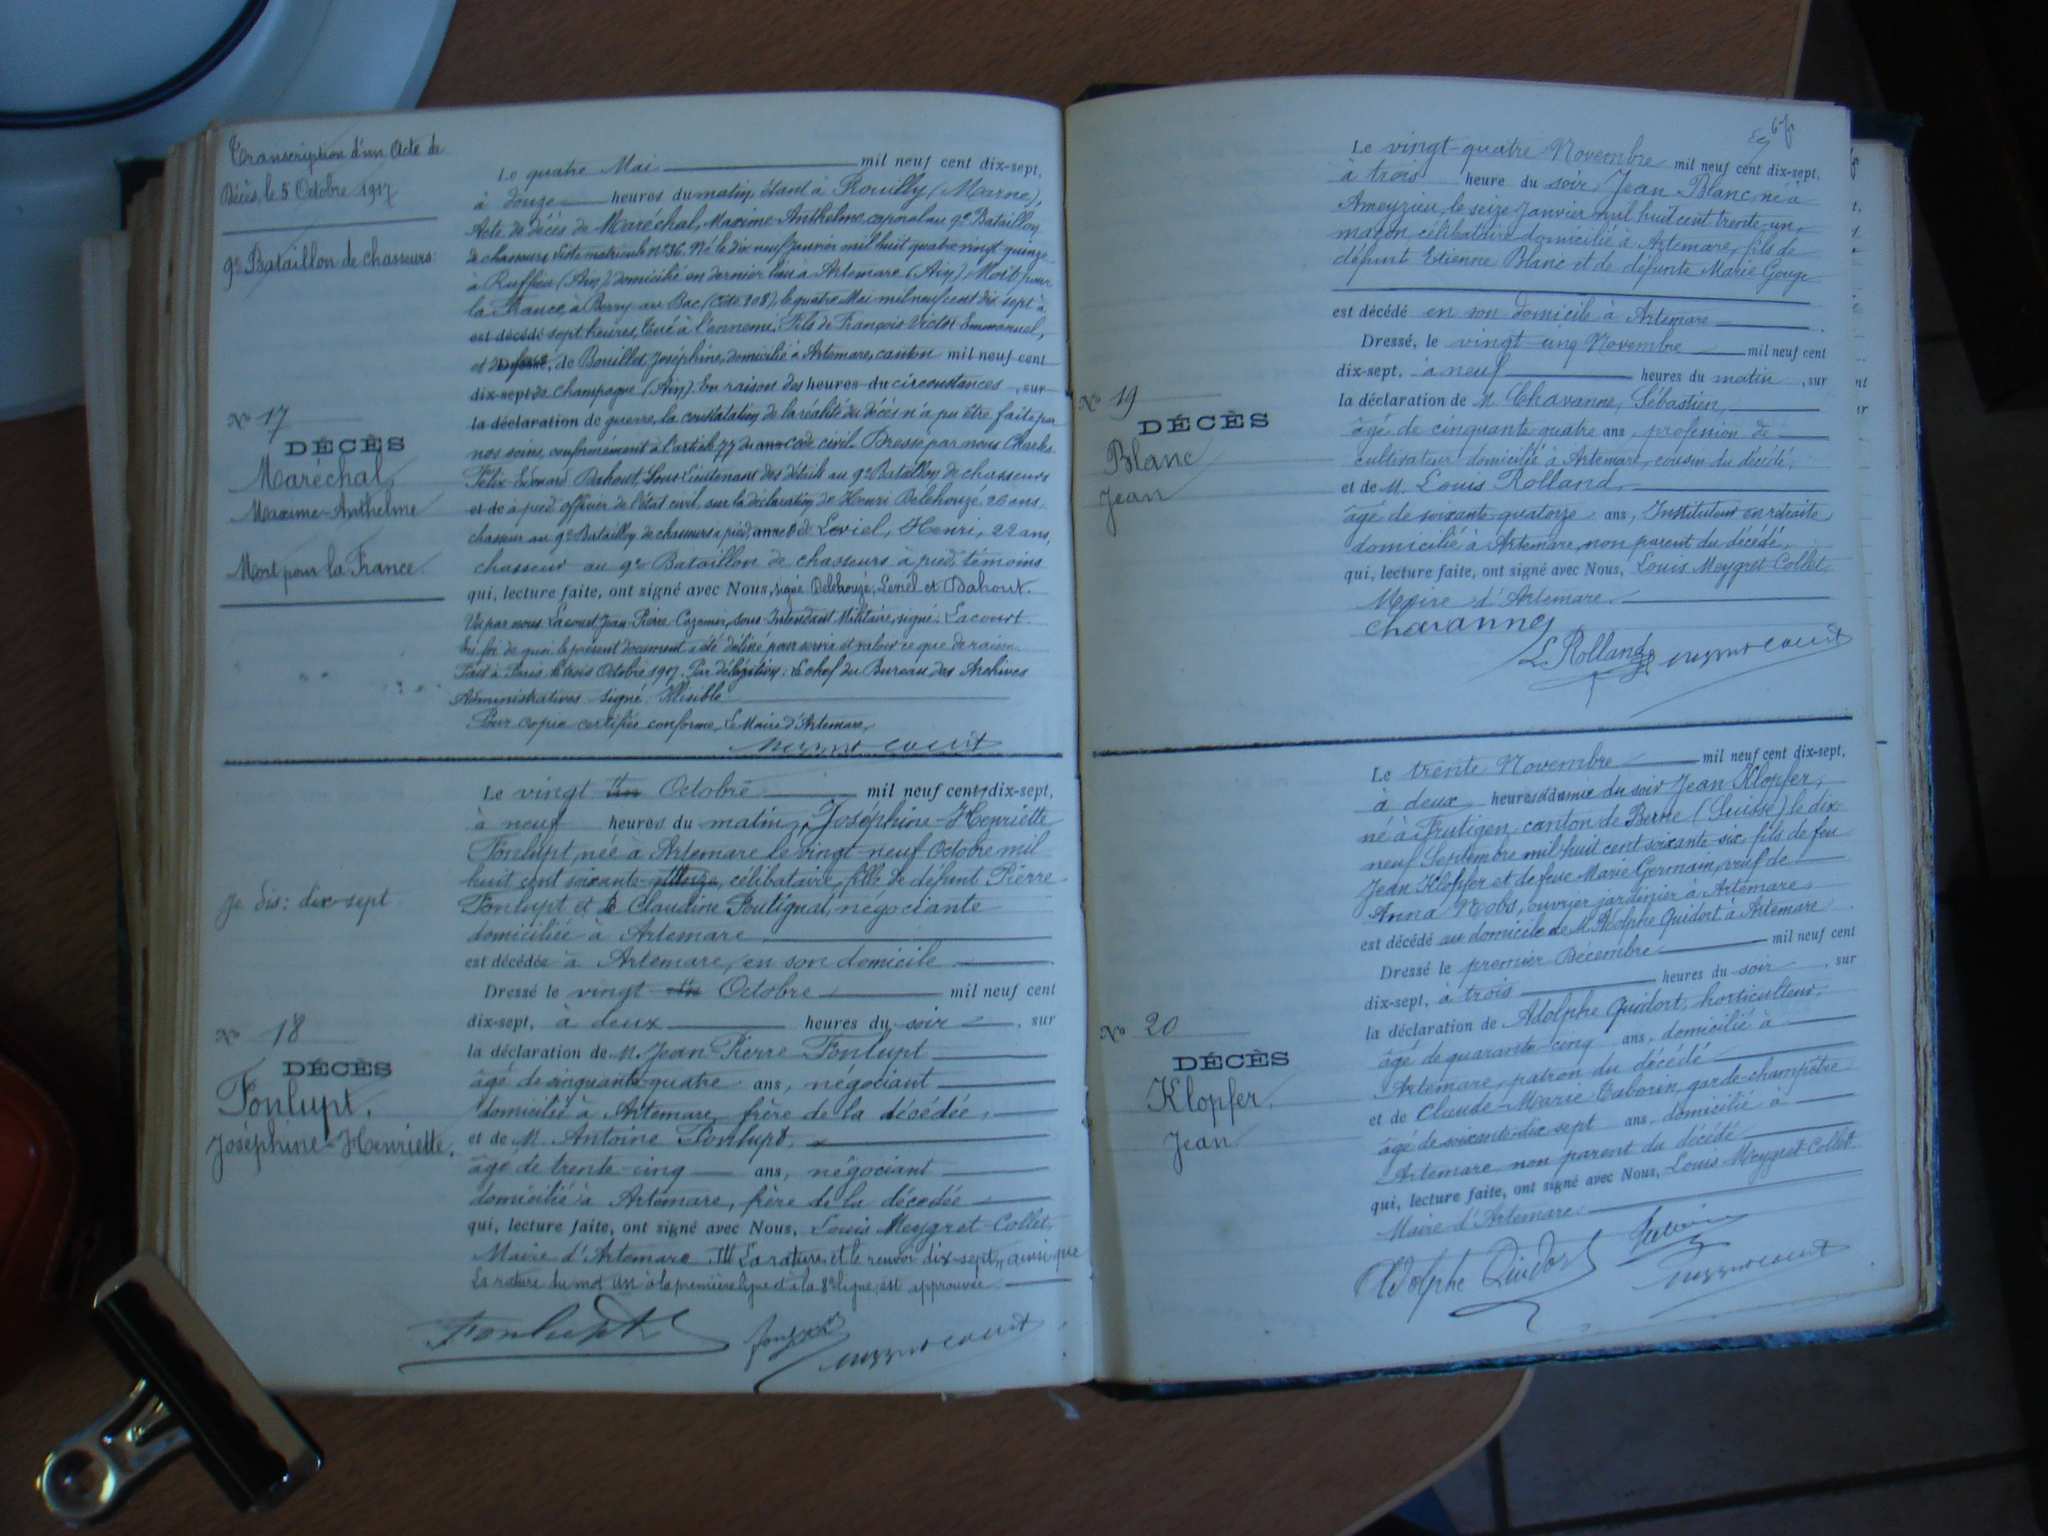 Transcription d'un Acte de
Décès, le 5 Octobre 1917
9e Bataillon de chasseurs
No 17
DÉCÈS
Maréchal
Maxime-Anthelme
Mort pour la France
Le quatre Mai mil neuf cent dix-sept,
à douze heures du matin, étant à Rouilly (Marne),
Acte de décès de Maréchal, Maxime Anthelme, caporal au 9e Bataillon
de chasseurs, liste matricule no 36. Né le dix neuf Janvier mil huit quatre vingt quinze
à Ruffieu (Ain), domicilié en dernier lieu à Artemare (Ain). Mort pour
la France, à Berry au Bac (Cote 108), le quatre Mai mil neuf cent dix sept à
est décédé sept heures, tué à l'ennemi, Fils de François Victor Emmanuel,
et de Dressé, de Bouillet, Joséphine, domiciliés à Artemare, canton mil neuf cent
dix-sept de Champagne (Ain). En raison des heures du circonstances, sur
la déclaration de guerre, la constatation de la réalité du décès n'a pu être faite par
nos soins, conformément à l'article 77 du ans code civil. Dressé par nous Charles
Félix Edouard Dahout, Sous-Lieutenant des détails au 9e Bataillon de chasseurs
et de à pied, officier de l'état civil, sur la déclaration de Henri Delehouzé, 26 ans,
chasseur au 9e Bataillon de chasseurs à pied, et de Leviel, Henri, 22 ans,
chasseur au 9e Bataillon de chasseurs à pied, témoins
qui, lecture faite, ont signé avec Nous, signé Delehouzé, Leviel et Dahout.
Vu par nous Lacourt Jean-Pierre Cazimir, sous-Intendant Militaire, signé: Lacourt.
En foi de quoi le présent document a été délivré pour servir et valoir ce que de raison.
Fait à Paris le trois Octobre 1917. Par délégation: Le chef du Bureau des Archives
Administratives signé: Illisible
Pour copie certifiée conforme, Le Maire d'Artemare,
Je dis: dix-sept
No 18
DÉCÈS
Fonlupt,
Joséphine-Henriette,
Le vingt un Octobre mil neuf cent dix-sept,
à neuf heures du matin, Joséphine-Henriette
Fonlupt, née à Artemare le vingt neuf Octobre mil
huit cent soixante-quatorze, célibataire, fille de défunt Pierre
Fonlupt et de Claudine Poutignat, négociante
domiciliée à Artemare
est décédée à Artemare, en son domicile
Dressé le vingt un Octobre mil neuf cent
dix-sept, à deux heures du soir, sur
la déclaration de M. Jean-Pierre Fonlupt
âgé de cinquante-quatre ans, négociant
domicilié à Artemare, frère de la décédée,
et de M. Antoine Fonlupt,
âgé de trente-cinq ans, négociant
domicilié à Artemare, frère de la décédée
qui, lecture faite, ont signé avec Nous, Louis Meygret-Collet,
Maire d'Artemare. La rature et le renvoi dix-sept, ainsi que
La rature du mot un à la première ligne et à la 8e ligne, est approuvée
Fonlupt
Le vingt-quatre Novembre mil neuf cent dix-sept,
à trois heure du soir, Jean Blanc, né à
Ameyzieu, le seize Janvier mil huit cent trente-un,
maçon, célibataire domicilié à Artemare, fils de
défunt Etienne Blanc et de défunte Marie Gouge
est décédé en son domicile à Artemare
Dressé, le vingt cinq Novembre mil neuf cent
dix-sept, à neuf heures du matin, sur
No 19
DÉCÈS
Blanc
Jean
la déclaration de M. Chavanne, Sébastien,
âgé de cinquante quatre ans, profession de
cultivateur domicilié à Artemare, cousin du décédé,
et de M. Louis Rolland,
âgé de soixante-quatorze ans, Instituteur en retraite
domicilié à Artemare, non parent du décédé,
qui, lecture faite, ont signé avec Nous, Louis Meygret-Collet
Maire d'Artemare.
Chavanne
L. Rolland
Le trente Novembre mil neuf cent dix-sept,
à deux heures du soir Jean Klopfer,
né à Frutigen, canton de Berne (Suisse) le dix-
neuf Septembre mil huit cent soixante-six, fils de feu
Jean Klopfer et de feue Marie Germain, veuf de
Anna Nobs, ouvrier jardinier à Artemare
est décédé au domicile de M. Adolphe Quidort à Artemare
Dressé le premier Décembre mil neuf cent
dix-sept, à trois heures du soir, sur
No 20
DÉCÈS
Klopfer,
Jean
la déclaration de Adolphe Quidort, horticulteur,
âgé de quarante-cinq ans, domicilié à
Artemare, patron du décédé
et de Claude-Marie Taborin, garde-champêtre
âgé de soixante-dix sept ans, domicilié à
Artemare non parent du décédé
qui, lecture faite, ont signé avec Nous, Louis Meygret-Collet
Maire d'Artemare.
Adolphe Quidort